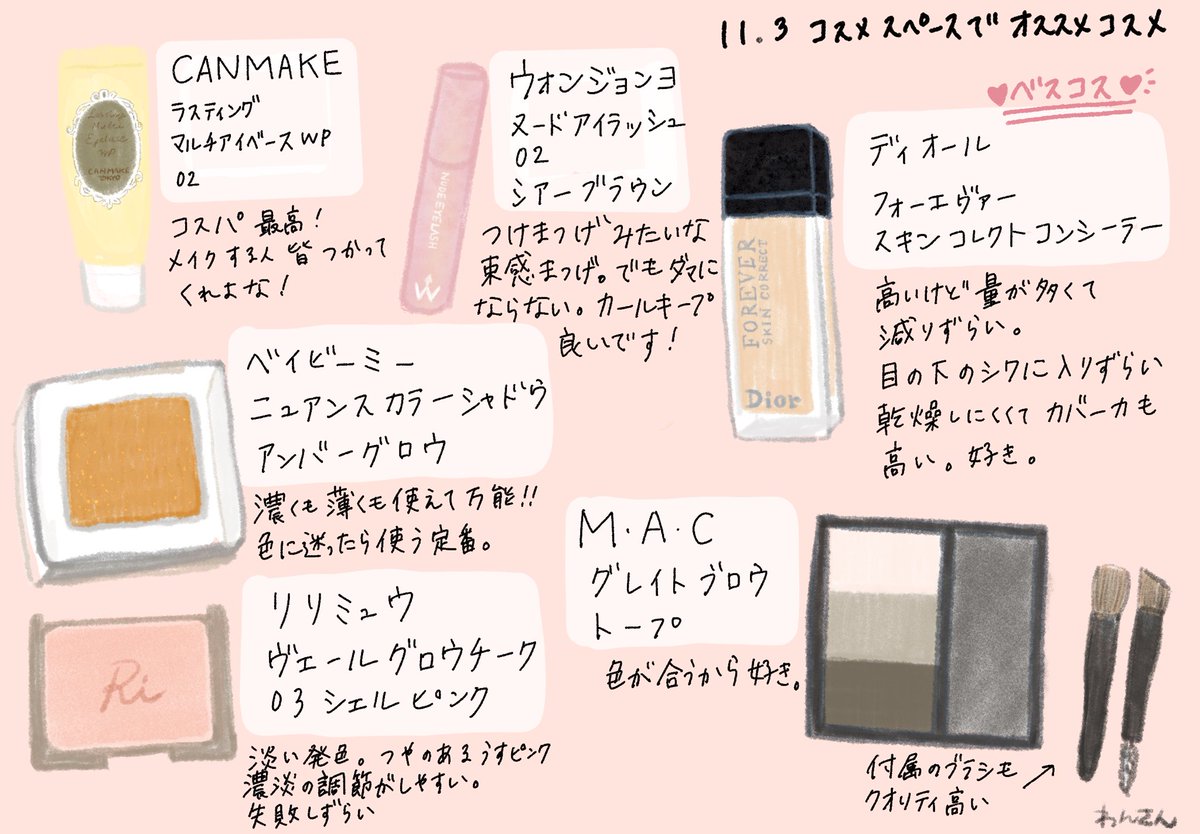 11.3 コスメスペースでオススメコスメ
CANMAKE
ラスティング
マルチアイベースWP
02
コスパ最高!
メイクする人皆つかって
くれよな!
Lasting
Multi
Eyebase
WP
CANMAKE
TOKYO
ウォンジョンヨ
ヌードアイラッシュ
02
シアーブラウン
つけまつげみたいな
束感まつげ。でもダマに
ならない。カールキープ
良いです!
NUDE EYELASH
W
ベスコス
ディオール
フォーエヴァー
スキンコレクトコンシーラー
高いけど量が多くて
減りずらい。
目の下のシワに入りずらい
乾燥しにくくてカバー力も
高い。好き。
FOREVER
SKIN CORRECT
Dior
ベイビーミー
ニュアンスカラーシャドウ
アンバーグロウ
濃くも薄くも使えて万能!!
色に迷ったら使う定番。
リリミュウ
ヴェールグロウチーク
03 シェルピンク
淡い発色。つやのあるうすピンク
濃淡の調節がしやすい。
失敗しずらい
Ri
M・A・C
グレイトブロウ
トープ
色が合うから好き。
付属のブラシも
クオリティ高い
わんさん